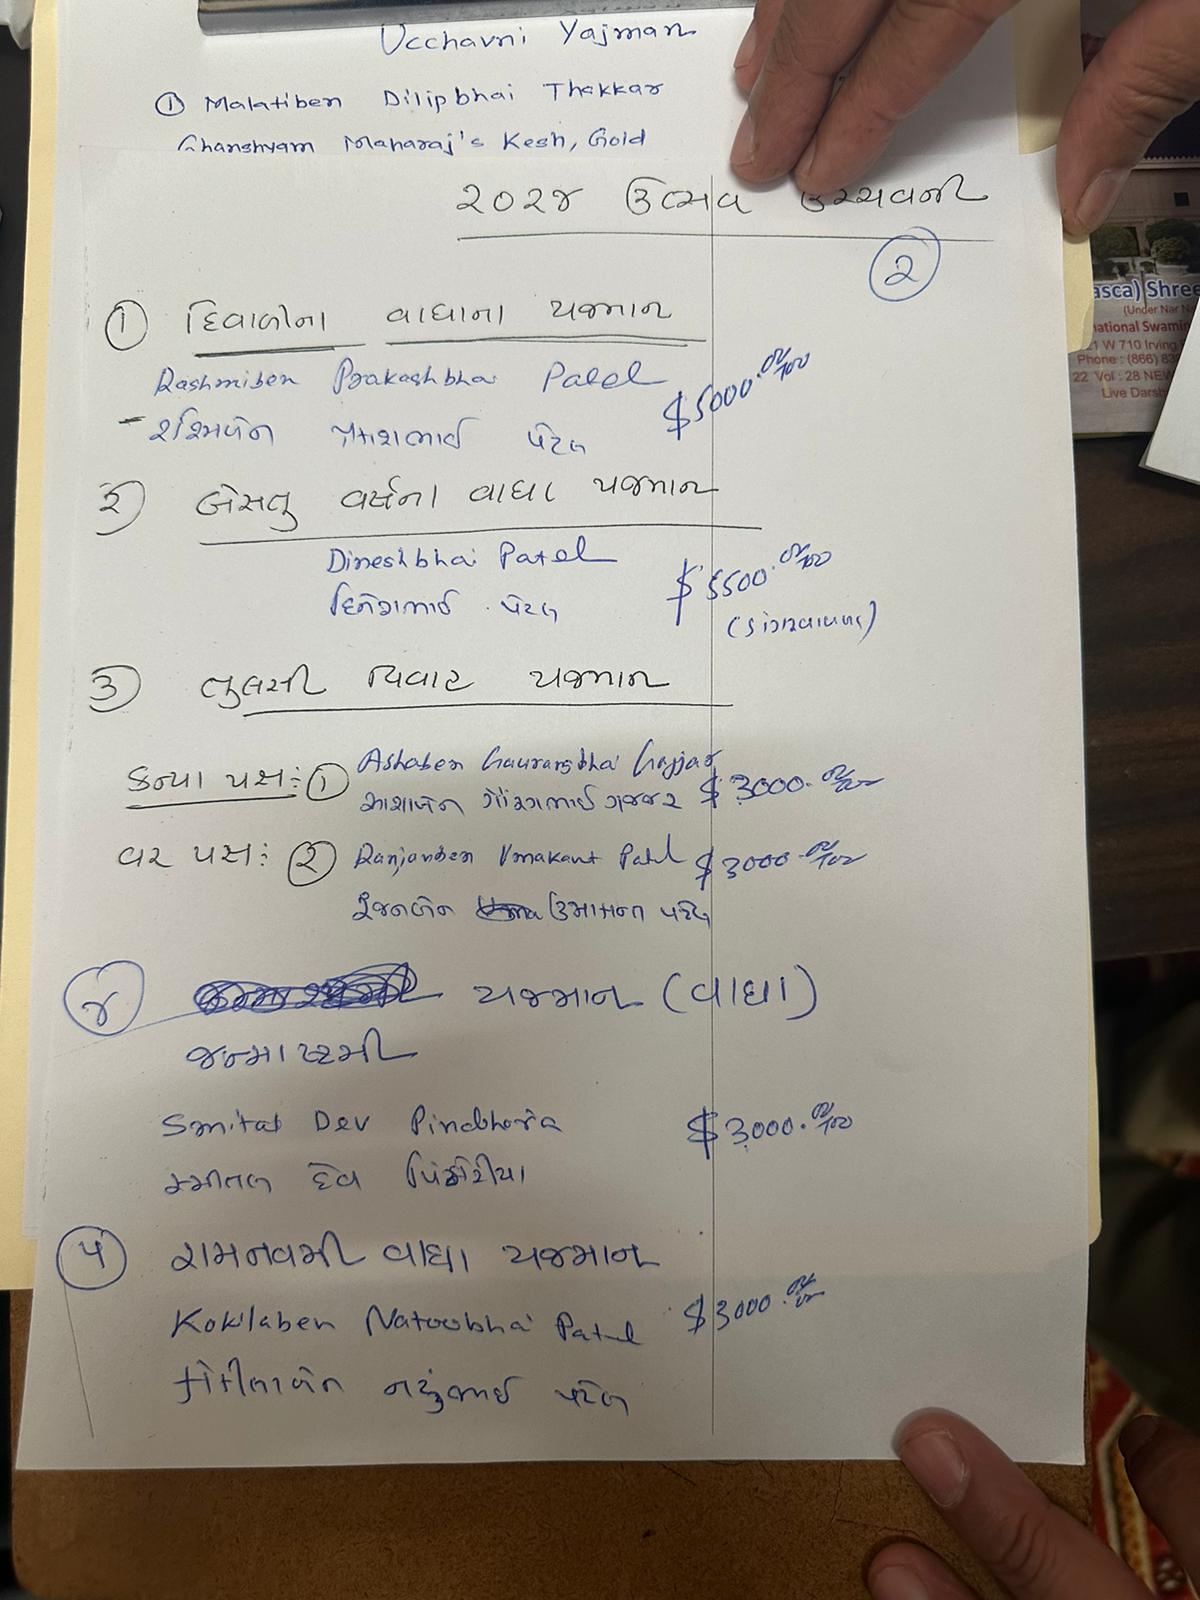 Ucchavni Yajman
① Malatiben Dilipbhai Thakkar
Ghanshyam Maharaj's Kesh, Gold
૨૦૨૪ ઉત્સવ ઉચ્ચવની
૨
① દિવાળીના વાઘાના યજમાન
Rashmiben Prakashbhai Patel $5000.00/100
રશ્મિબેન પ્રકાશભાઈ પટેલ
૨ બેસતુ વર્ષના વાઘા યજમાન
Dineshbhai Patel $5500.00/100
દિનેશભાઈ પટેલ
૩ તુલસી વિવાહ યજમાન
કન્યા પક્ષ: ① Ashaben Gaurangbhai Gajjar $3000.00/100
આશાબેન ગૌરાંગભાઈ ગજ્જર
વર પક્ષ: ૨ Ranjanben Umakant Patel $3000.00/100
રંજનબેન ઉમાકાન્ત પટેલ
૪ યજમાન (વાઘા)
જન્માષ્ટમી
Smital Dev Pindhoria $3000.00/100
સ્મીતલ દેવ
૫ રામનવમી વાઘા યજમાન
Kokilaben Natoobhai Patel $3000.00/100
કોકીલાબેન નટુભાઈ પટેલ
asca) Shree
(Under Nar N
national Swamin
1 W 710 Irving
Phone : (866) 83
22 Vol : 28 NEW
Live Darsh